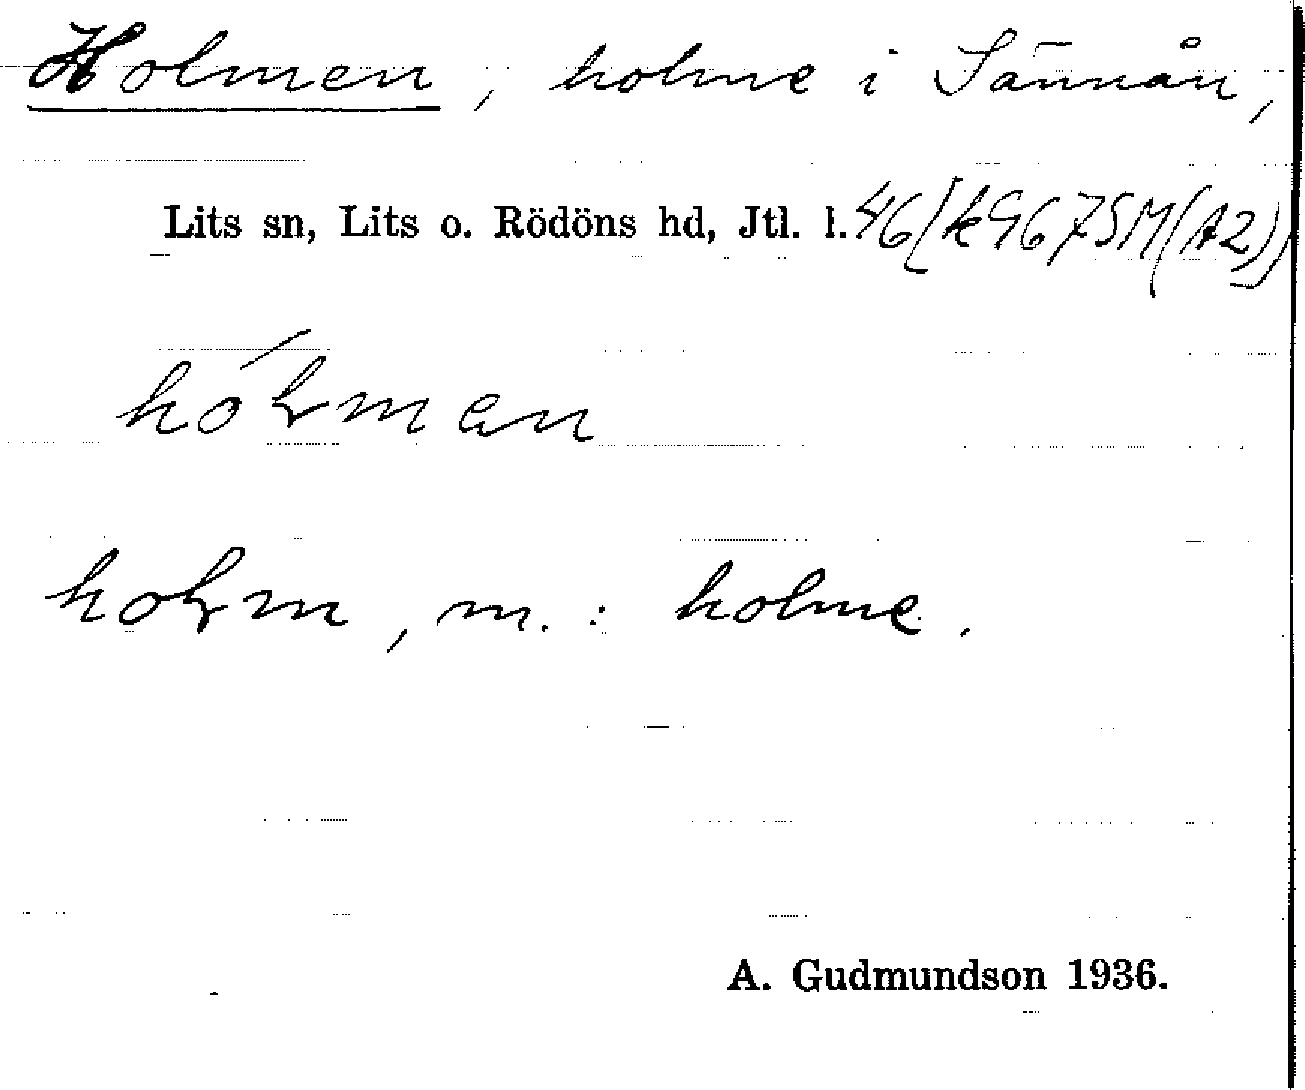 Holmen, holme i Sännån,
Lits sn, Lits o. Rödöns hd, Jtl. l. 46/k9675M(A2))
hóɫman
hoɫm, m. : holme.
A. Gudmundson 1936.